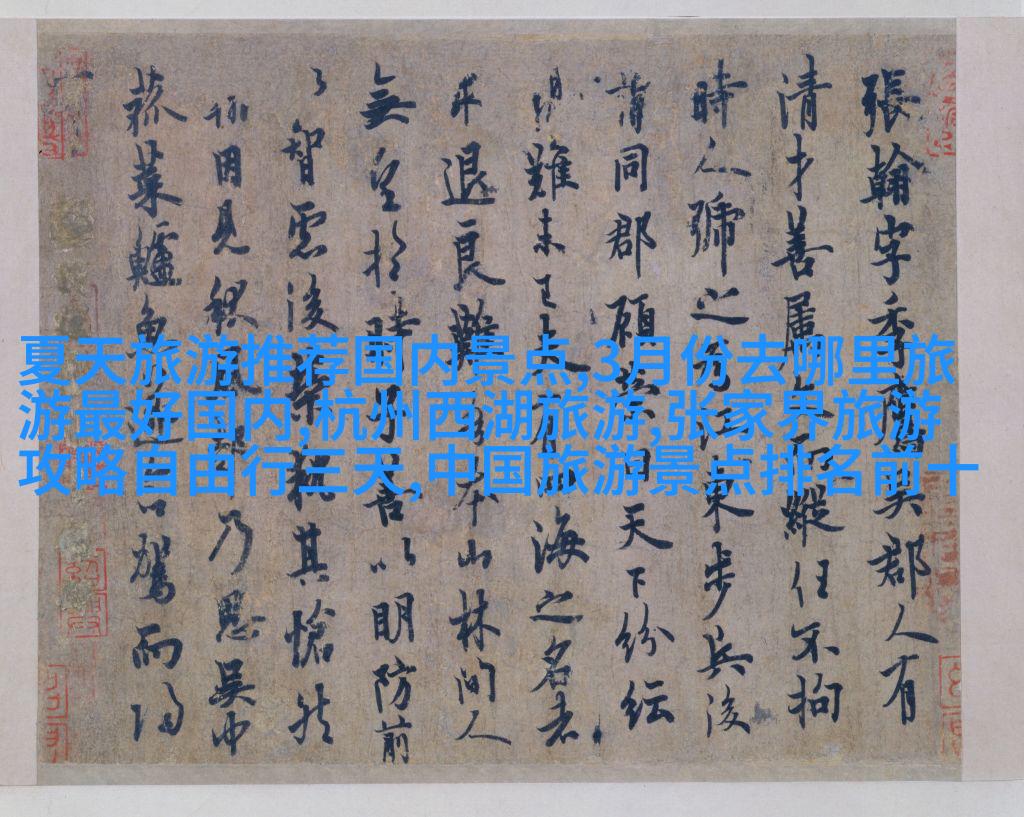 張翰字季鷹吳郡人有
清才善屬文而縱任不拘
時人號之為江東步兵後
謂同郡顧榮曰天下紛紜
禍難未已夫有四海之名者
求退良難吾本山林間人
無望於時子善以明防前
以智慮後榮執其愴然
翰因見秋風起乃思吳中
菰菜鱸魚遂命駕而歸
夏天旅游推荐国内景点,3月份去哪里旅
游最好国内,杭州西湖旅游,张家界旅游
攻略自由行三天,中国旅游景点排名前十